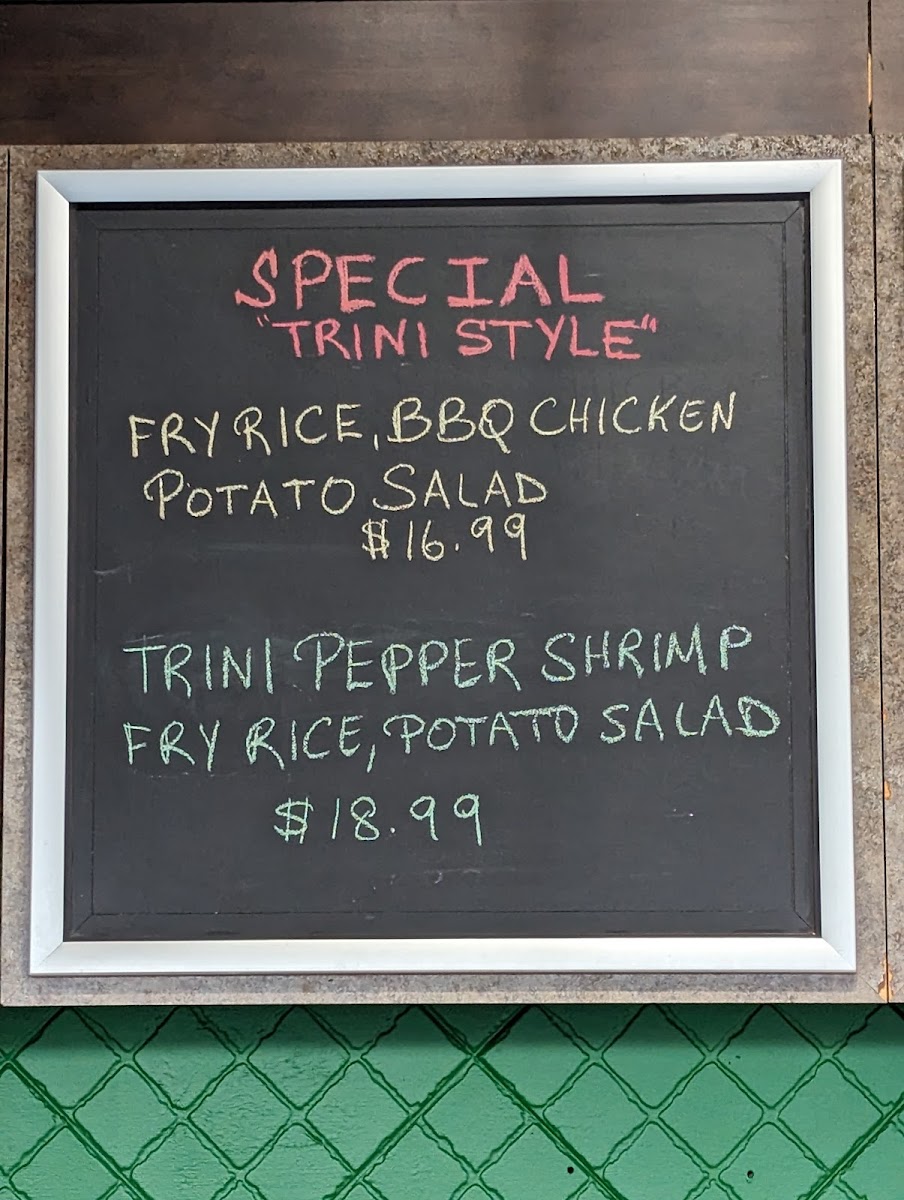 SPECIAL
"TRINI STYLE"
FRY RICE, BBQ CHICKEN
POTATO SALAD
$16.99
TRINI PEPPER SHRIMP
FRY RICE, POTATO SALAD
$18.99